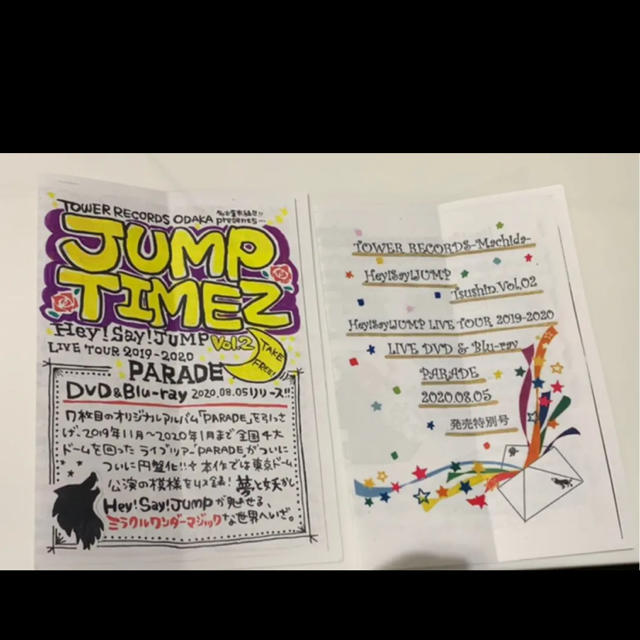 TOWER RECORDS ODAKA
presents
JUMP
TIMEZ
Vol.2
TAKE FREE!
Hey!Say!JUMP
LIVE TOUR 2019-2020
PARADE
DVD&Blu-ray 2020.08.05リリーズ!!
7枚目のオリジナルアルバム「PARADE」を引っさ
げ、2019年11月〜2020年1月まで全国4大
ドームを回ったライブツアーPARADEがついに
ついに円盤化!!本作では東京ドーム
公演の模様を収録!夢と妖かし
Hey!Say!JUMPが魅せる、
ミラクルワンダーマジックな世界へいざ。
TOWER RECORDS-Machida-
Hey!Say!JUMP
Tsushin.Vol,02
Hey!Say!JUMP LIVE TOUR 2019-2020
LIVE DVD & Blu-ray
PARADE
2020.08.05
発売特別号